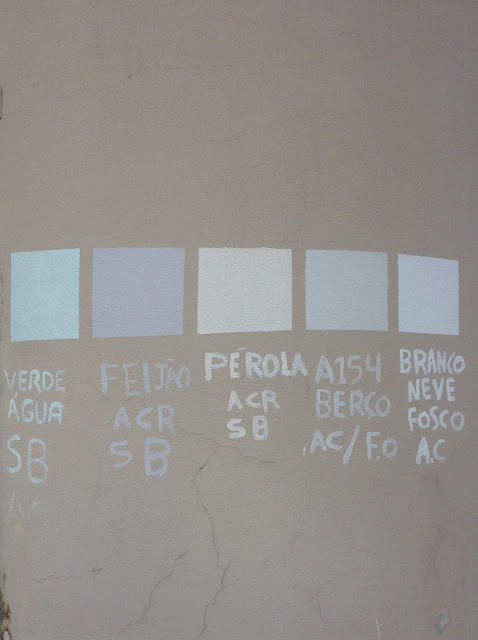 VERDE
ÁGUA
SB
FEIJÃO
ACR
SB
PÉROLA
ACR
SB
A154
BERÇO
AC/F.O
BRANCO
NEVE
FOSCO
A.C